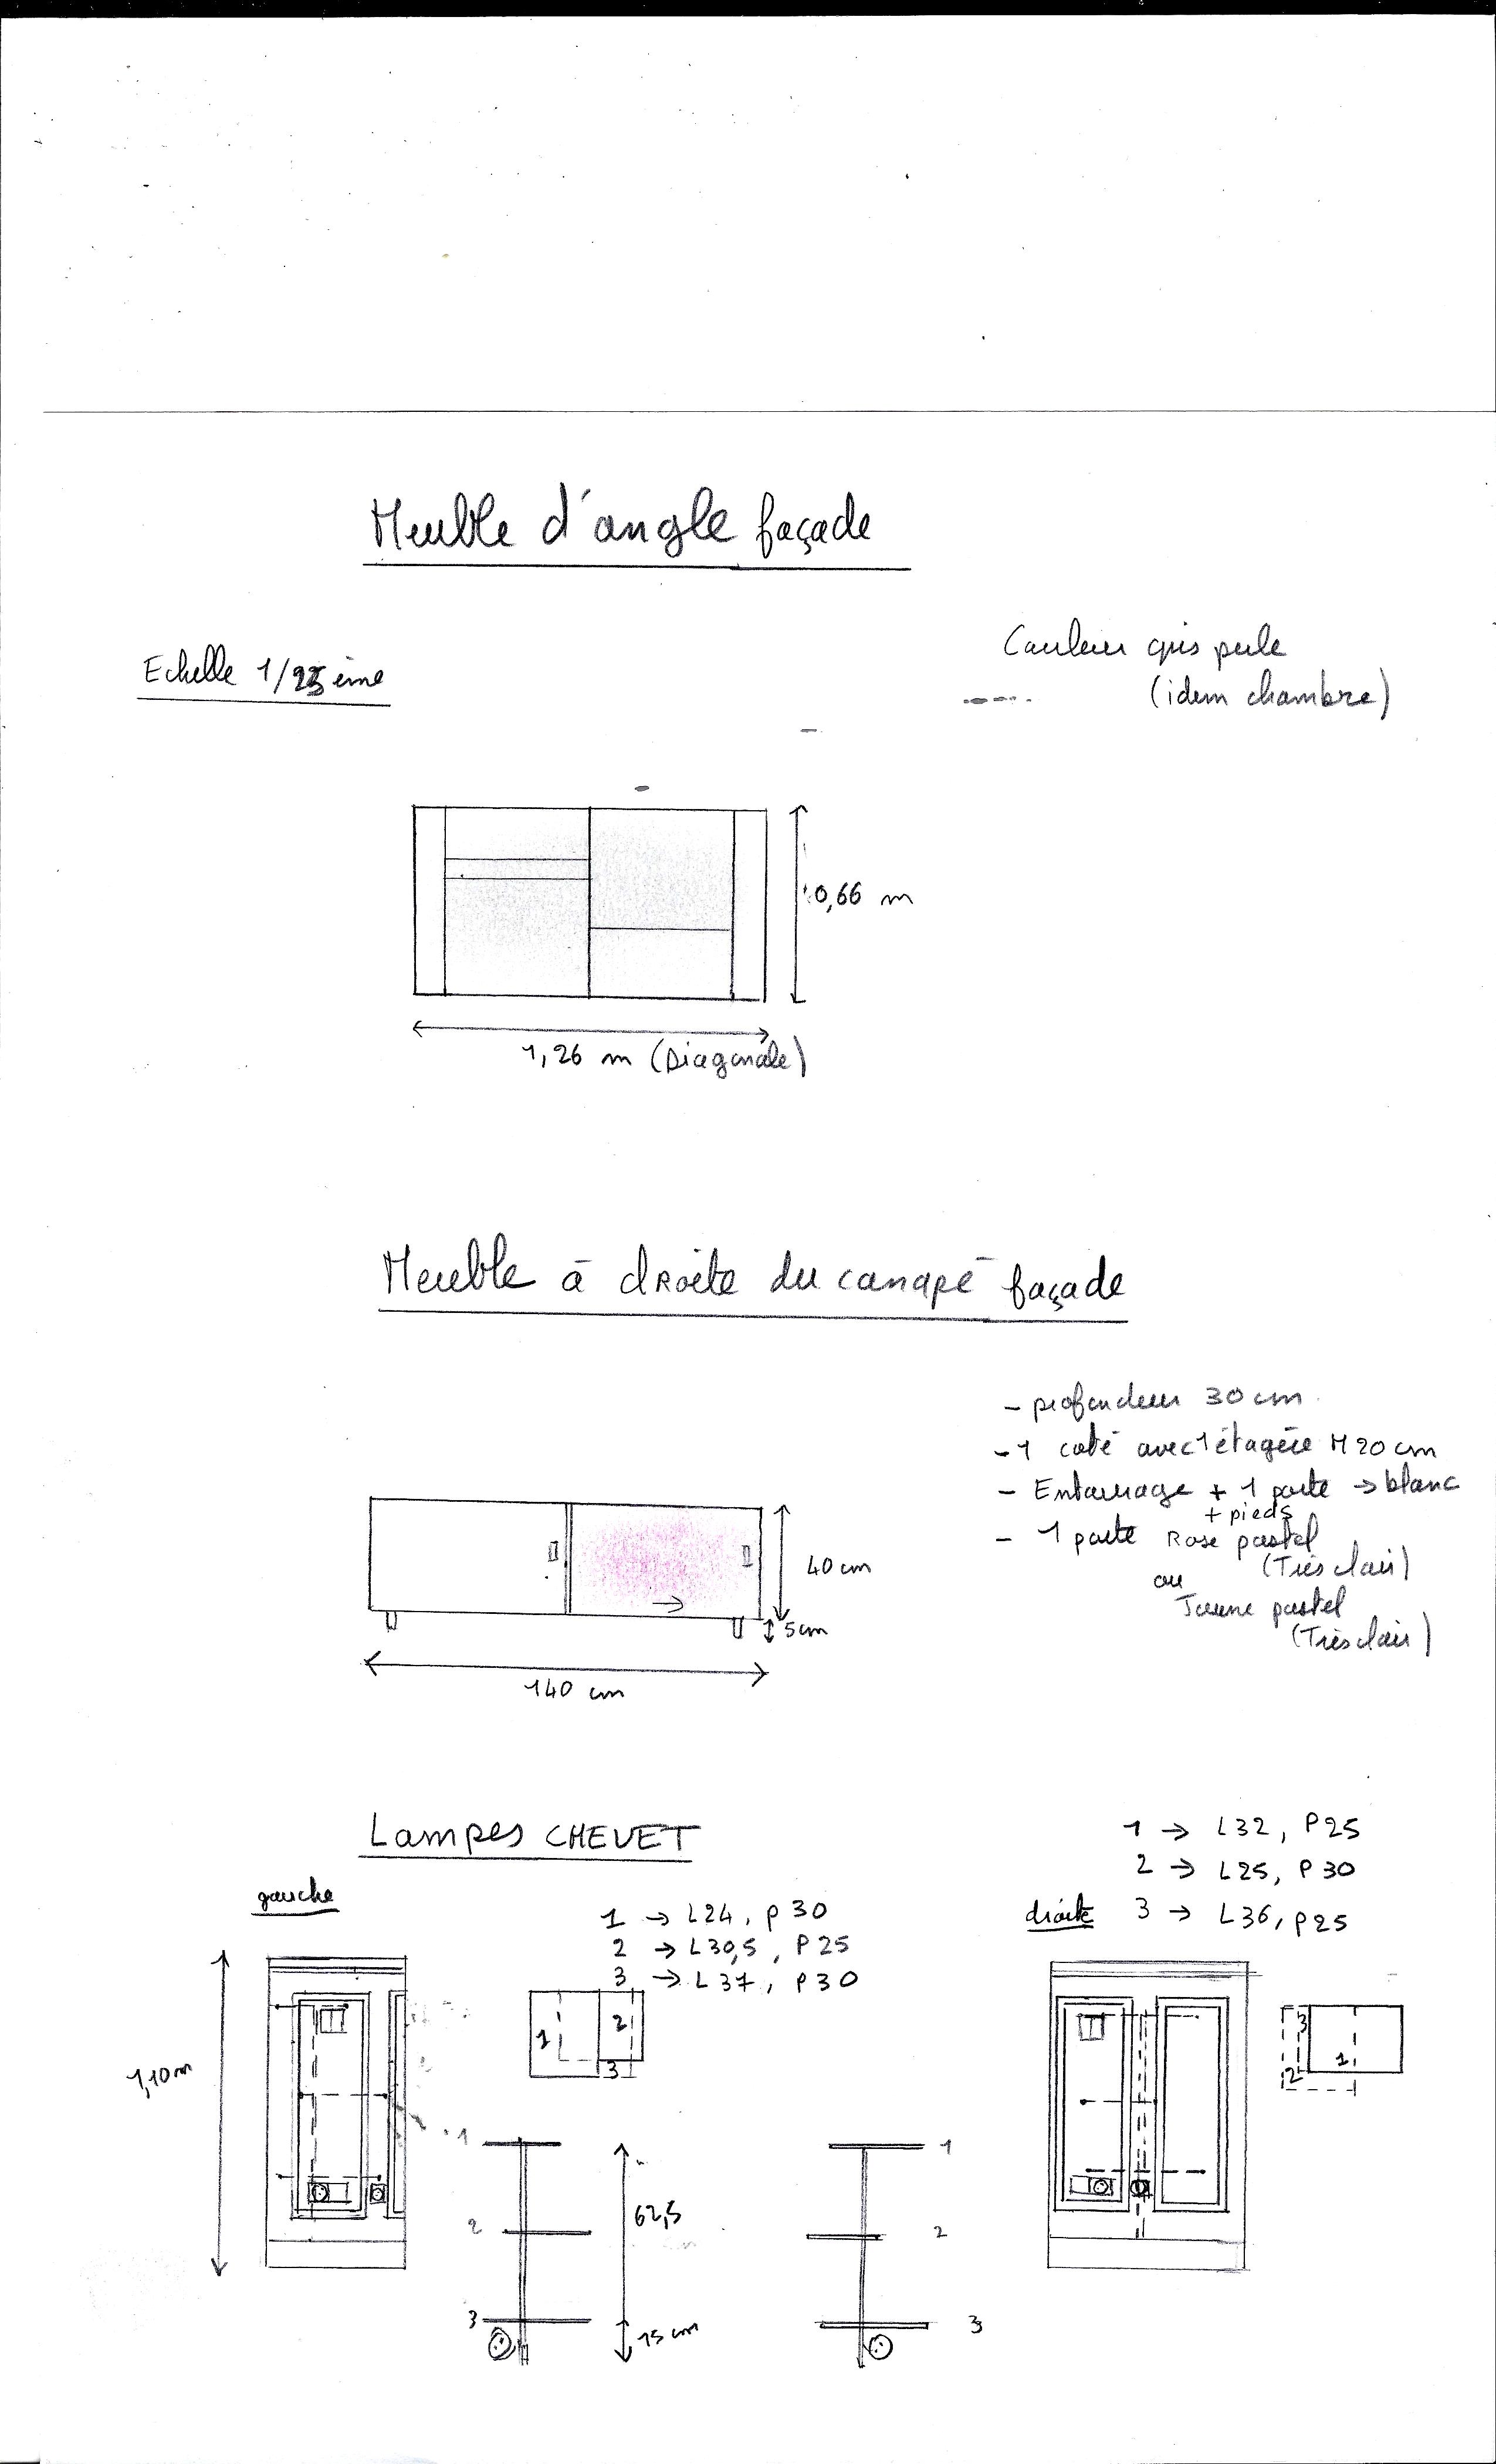 Meuble d'angle façade
Echelle 1/25 ème
Couleur gris perle
(idem chambre)
0,66 m
1,26 m (Diagonale)
Meuble à droite du canapé façade
- profondeur 30 cm
- 1 coté avec 1 étagère H 20 cm
- Entourage + 1 porte → blanc
+ pieds
- 1 porte Rose pastel
(Très clair)
ou
Jaune pastel
(Très clair)
40 cm
5 cm
140 cm
Lampes CHEVET
gauche
1 → L24, P 30
2 → L30,5, P 25
3 → L 37, P 30
1 → L32, P25
2 → L25, P 30
droite 3 → L36, P25
1,10 m
1
2
3
3
1
2
1
2
3
62,5
15 cm
1
2
3